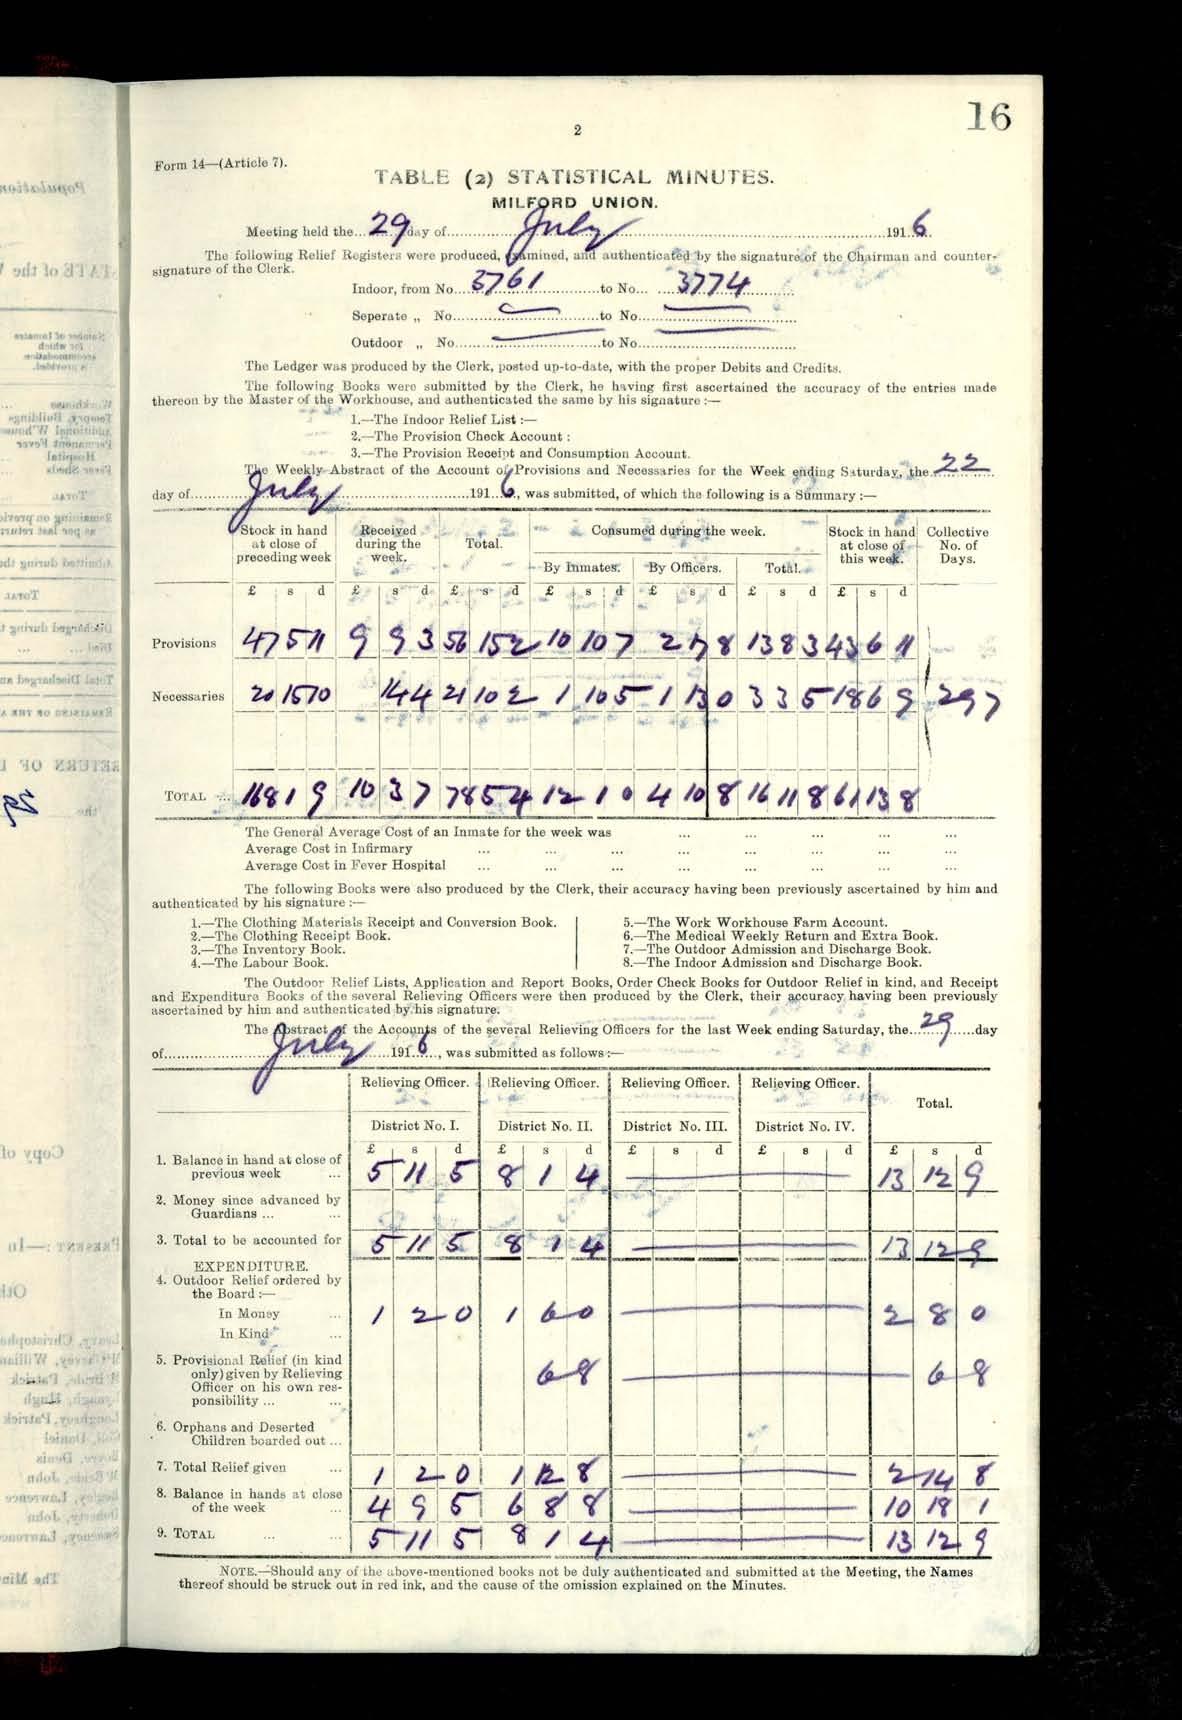 16
2
Form 14—(Article 7).
TABLE (2) STATISTICAL MINUTES.
MILFORD UNION.
Meeting held the 29 day of July 1916.
The following Relief Registers were produced, examined, and authenticated by the signature of the Chairman and counter-
signature of the Clerk.
Indoor, from No. 3761 to No. 3774
Seperate „ No. to No.
Outdoor „ No. to No.
The Ledger was produced by the Clerk, posted up-to-date, with the proper Debits and Credits.
The following Books were submitted by the Clerk, he having first ascertained the accuracy of the entries made
thereon by the Master of the Workhouse, and authenticated the same by his signature :—
1.—The Indoor Relief List :—
2.—The Provision Check Account :
3.—The Provision Receipt and Consumption Account.
The Weekly Abstract of the Account of Provisions and Necessaries for the Week ending Saturday, the 22
day of July 1916, was submitted, of which the following is a Summary :—
Stock in hand at close of preceding week Received during the week. Total. Consumed during the week. Stock in hand at close of this week. Collective No. of Days.
By Inmates. By Officers. Total.
£ s d £ s d £ s d £ s d £ s d £ s d £ s d
Provisions 47 5 11 9 9 3 56 15 2 10 10 7 2 17 8 13 8 3 43 6 11
Necessaries 20 15 10 14 4 21 10 2 1 10 5 1 13 0 3 3 5 18 6 9 297
TOTAL ... 168 1 9 10 3 7 78 5 4 12 1 0 4 10 8 16 11 8 61 13 8
The General Average Cost of an Inmate for the week was ... ... ... ... ...
Average Cost in Infirmary ... ... ... ... ... ... ... ...
Average Cost in Fever Hospital ... ... ... ... ... ... ... ...
The following Books were also produced by the Clerk, their accuracy having been previously ascertained by him and
authenticated by his signature :—
1.—The Clothing Materials Receipt and Conversion Book.
2.—The Clothing Receipt Book.
3.—The Inventory Book.
4.—The Labour Book.
5.—The Work Workhouse Farm Account.
6.—The Medical Weekly Return and Extra Book.
7.—The Outdoor Admission and Discharge Book.
8.—The Indoor Admission and Discharge Book.
The Outdoor Relief Lists, Application and Report Books, Order Check Books for Outdoor Relief in kind, and Receipt
and Expenditure Books of the several Relieving Officers were then produced by the Clerk, their accuracy having been previously
ascertained by him and authenticated by his signature.
The Abstract of the Accounts of the several Relieving Officers for the last Week ending Saturday, the 29 day
of July 1916, was submitted as follows :—
Relieving Officer. Relieving Officer. Relieving Officer. Relieving Officer. Total.
District No. I. District No. II. District No. III. District No. IV.
£ s d £ s d £ s d £ s d £ s d
1. Balance in hand at close of
previous week ... 5 11 5 8 1 4 13 12 9
2. Money since advanced by
Guardians ... ...
3. Total to be accounted for 5 11 5 8 1 4 13 12 9
EXPENDITURE.
4. Outdoor Relief ordered by
the Board :—
In Money ... 1 2 0 1 6 0 2 8 0
In Kind ...
5. Provisional Relief (in kind
only) given by Relieving 6 8 6 8
Officer on his own res-
ponsibility ... ...
6. Orphans and Deserted
Children boarded out ...
7. Total Relief given ... 1 2 0 1 12 8 2 14 8
8. Balance in hands at close
of the week ... 4 9 5 6 8 8 10 18 1
9. TOTAL ... ... 5 11 5 8 1 4 13 12 9
NOTE.—Should any of the above-mentioned books not be duly authenticated and submitted at the Meeting, the Names
thereof should be struck out in red ink, and the cause of the omission explained on the Minutes.